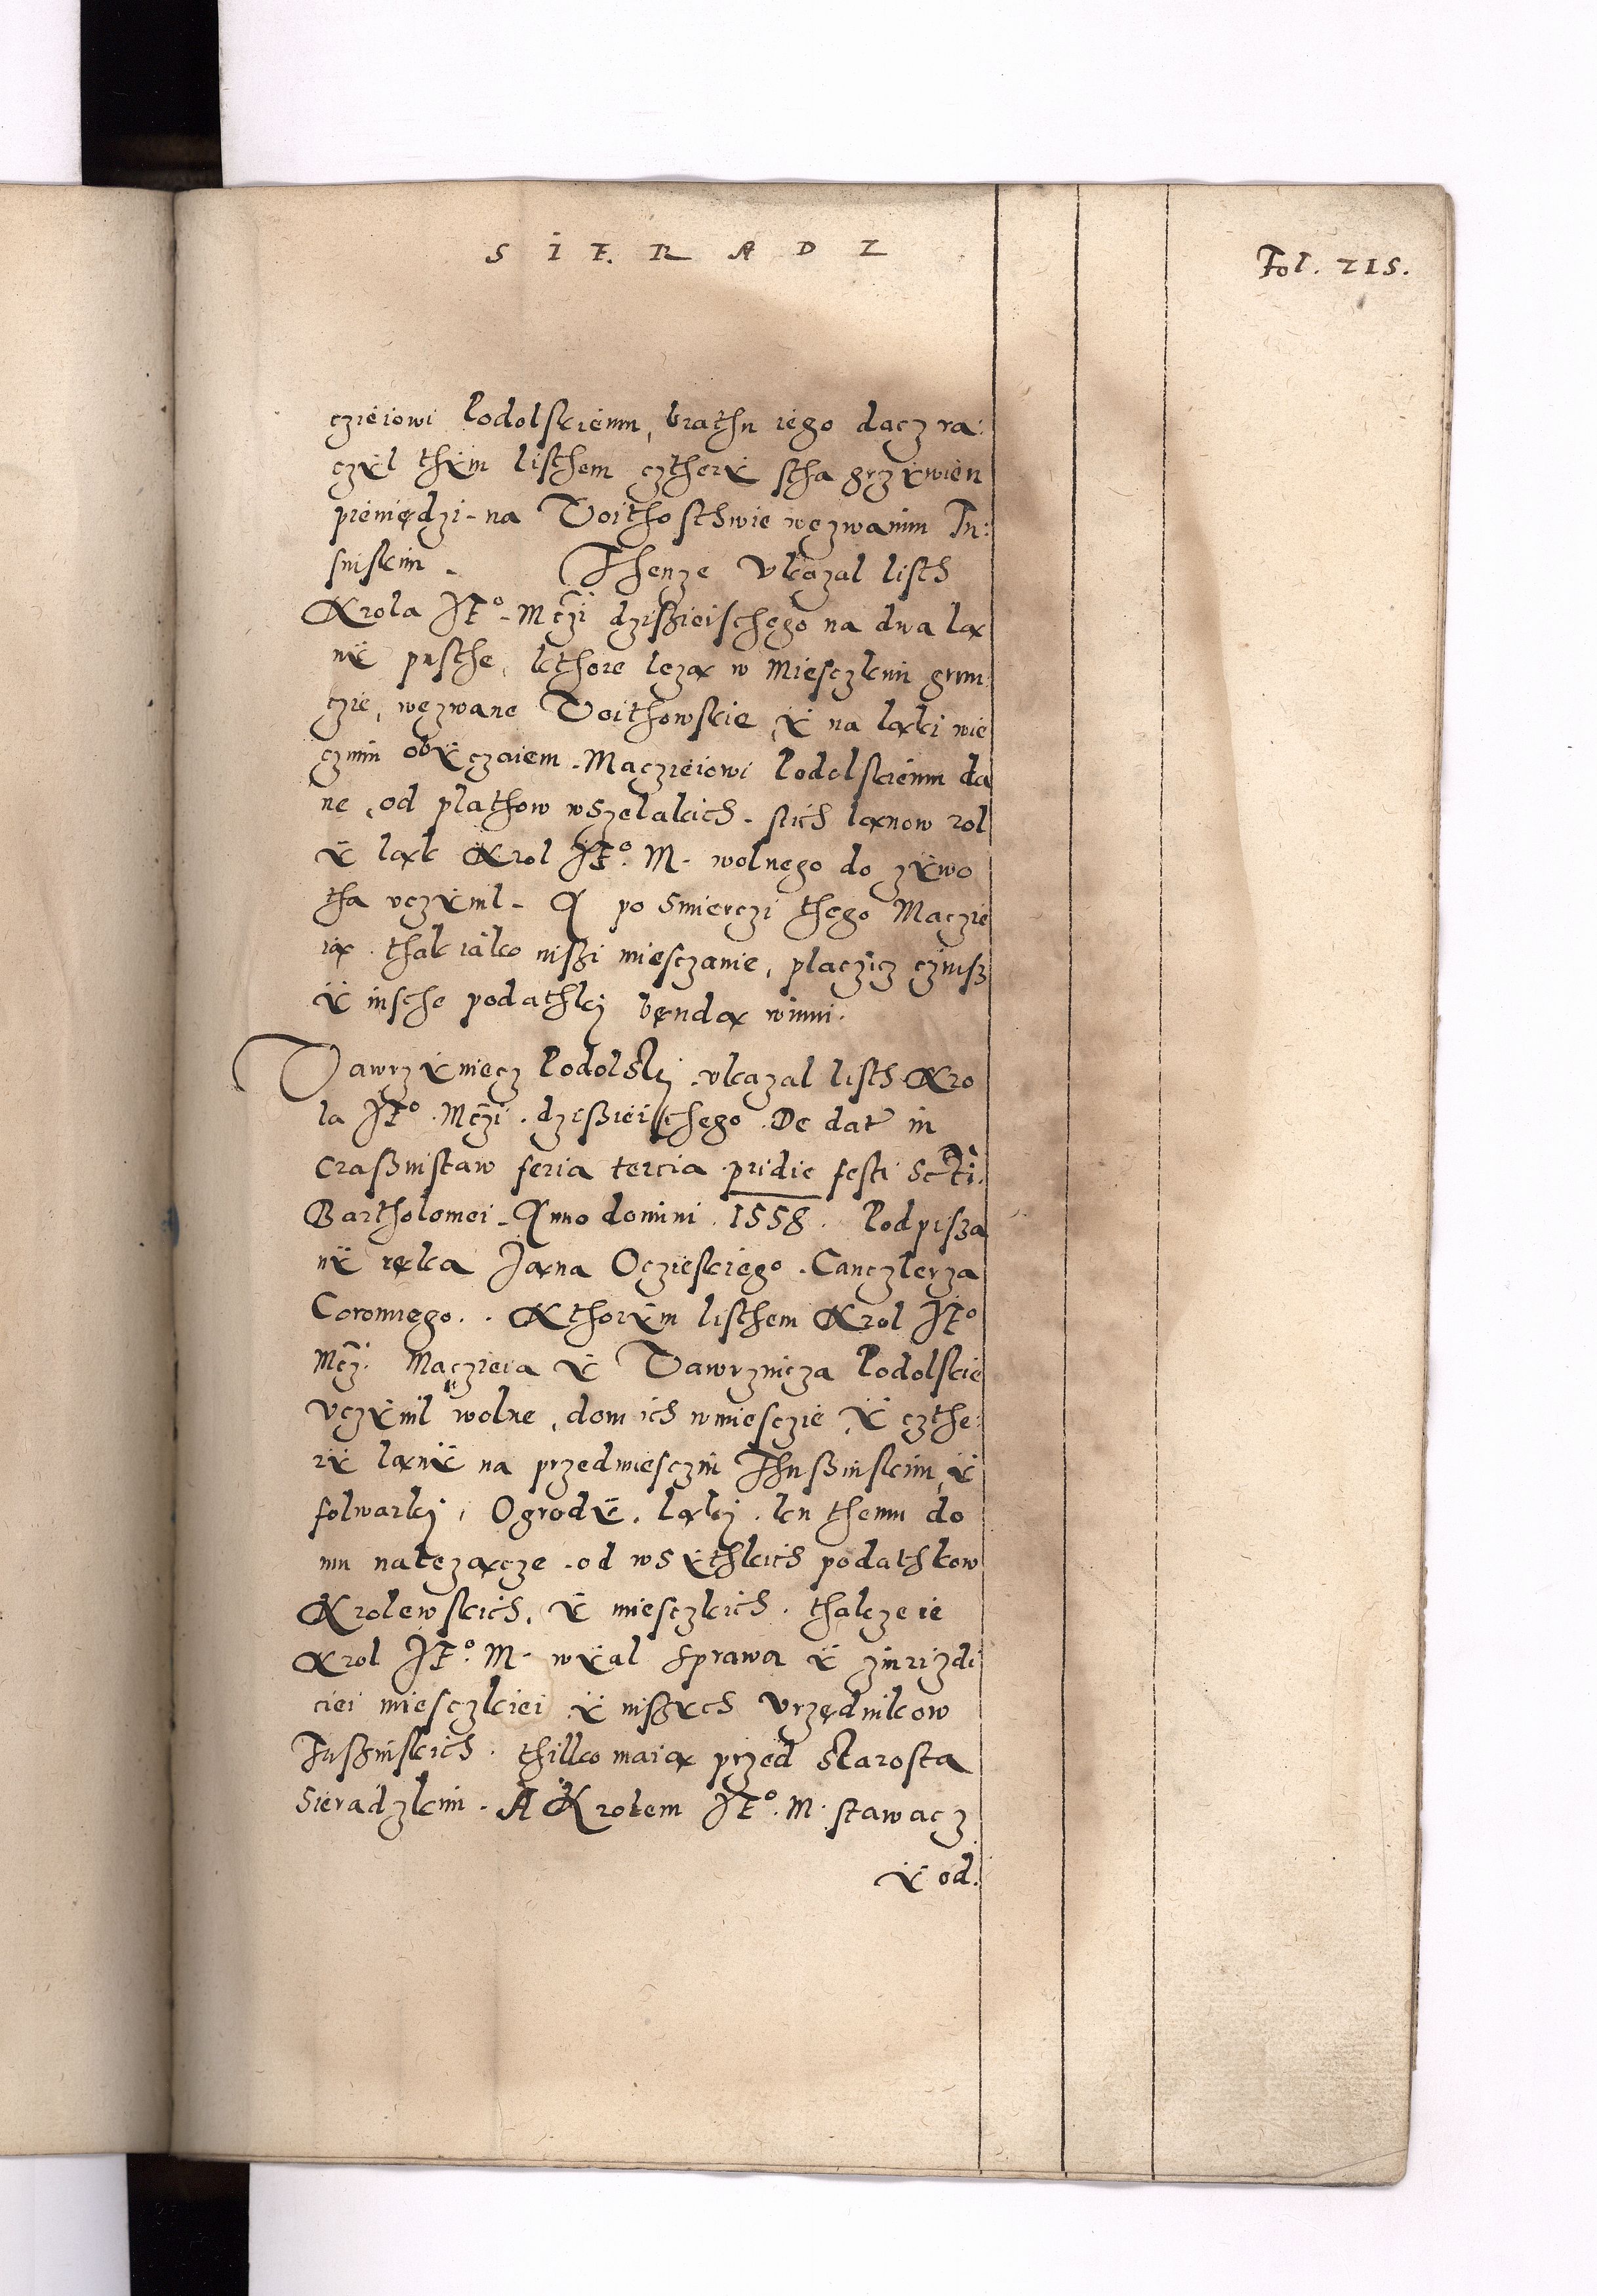 SIERADZ
Fol. 215.
czieiowi Podolskiemu, brathu iego dacz ra:
czÿl thÿm listhem cztherÿ stha grzÿwien
pieniędzi - na Voithosthwie wezwanim Tu:
sniskim - Thenze vkazal listh
Krola JE° - Mczi dzißieischego na dwa lą
nÿ pusthe, kthore lezą w Miesczkim grun
czie, wezwane Voithowskie, ÿ na ląki wie
cznim obÿczaiem - Maczieiowi Podolskiemu da
ne, od plathow wszelakich - stich lanow rol
ÿ ląk Krol JE° M - wolnego do zÿwo
tha vczÿnil - A po smierczi thego Maczie
ią . thak iako inßi miesczanie, placzicz czinsz
ÿ insche podathkj bendą winni.
Vawrzÿniecz Podolskj . vkazal listh Kro
la JE° . Mczi . dzißieischego . De dat in
Craßnistaw feria tercia pridie festi Scti.
Bartholomei - Anno domini . 1558 . Podpisza
nÿ ręka Jana Oczieskiego . Canczlerza
Coronnego . . Kthorÿm listhem Krol JE°
Mczi Maczieia ÿ Vawrznicza Podolskie
vczÿnil wolne, dom ich wmiesczie, ÿ czthe:
rÿ lanÿ na przedmiesczu Thußinskim, ÿ
folwarkj, Ogrodÿ, ląkj . ku themu do
mu należącze . od wsÿthkich podathkow
Krolewskich, ÿ miesczkich . thakze ie
Krol JE° M - wÿal sprawa ÿ zinrizdi
ciei miesczkiei, ÿ inßÿch vrzędnikow
Tußinskich . thilko maią przed starosta
Sieradzkim . A Krolem JE° . M . stawacz
ÿ od.